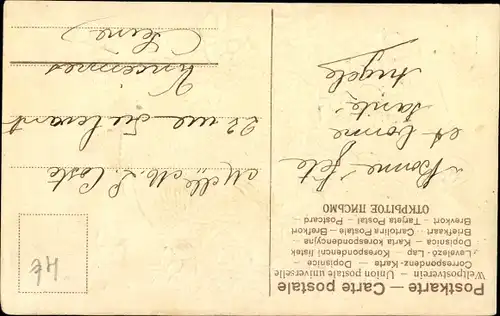 Postkarte — Carte postale
Weltpostverein — Union postale universelle
Correspondenz-Karte — Dopisnice
Levelező-Lap — Korespondenční lístek
Dopisnica — Karta korespondencyjna
Briefkaart — Cartolina Postale — Brefkort
Brevkort — Tarjeta Postal — Postcard
ОТКРЫТОЕ ПИСЬМО
Bonne fête
et bonne
santé
Angèle
Melle M. L. Coste
23 rue du Levant
Vincennes
(Seine)